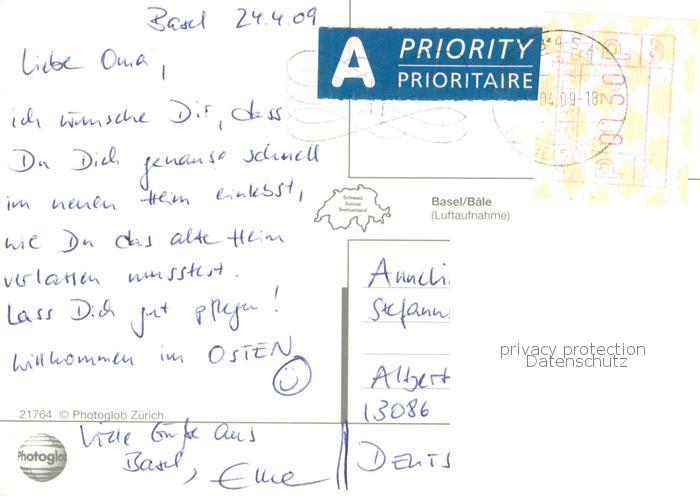 Basel 24.4.09
Liebe Oma,
ich wünsche Dir, dass
Du Dich genauso schnell
im neuen Heim einlebst,
wie Du das alte Heim
verlassen musstest.
Lass Dich gut pflegen!
Willkommen im OSTEN
Viele Grüße aus
Basel,
21764 © Photoglob Zürich
Photoglob
A PRIORITY
PRIORITAIRE
04.09-18
P 0130 P
Schweiz
Suisse
Switzerland
Basel/Bâle
(Luftaufnahme)
Anneli
Stefanns
Albert
13086
DEUTS
privacy protection
Datenschutz